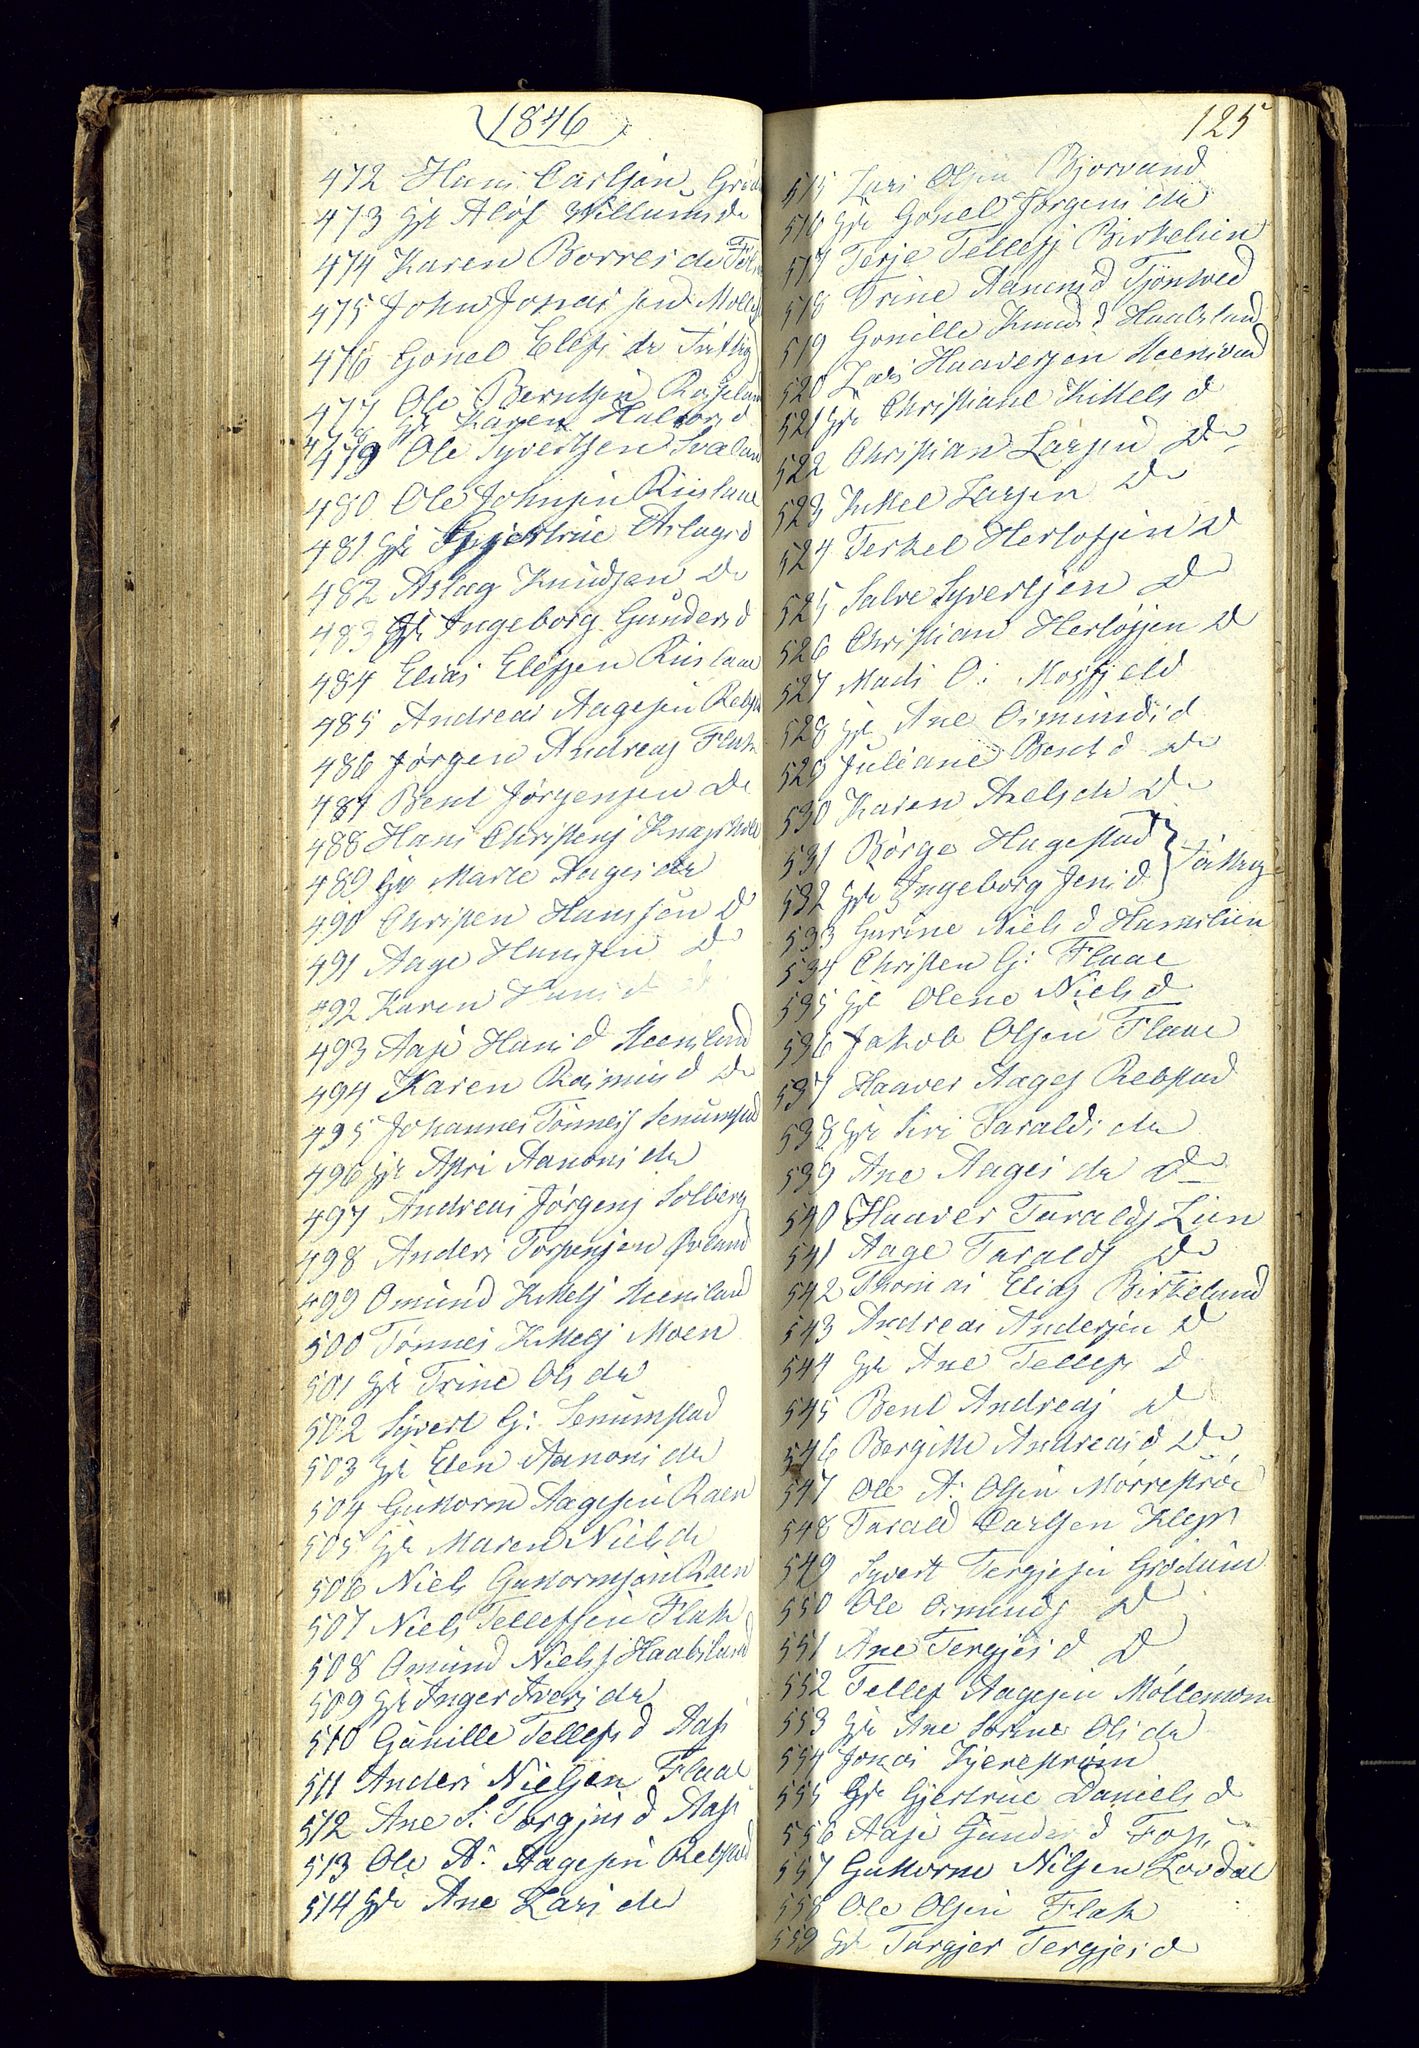 1846
472 Hans Carlsen
473 Gk Aløf Willumsdr
474 Karen Borresdr
475 John Jonassen
476 Gonel Elefsdr
477 Ole Berntsen Røiseland
Gk Karen Halvorsd
479 Ole Syvertsen Svaland
480 Ole Johnsen Risland
481 Gk Gjertrue Aslagsd
482 Aslag Knudsen Do
483 Gk Ingeborg Gundersd
484 Elias Elefsen Risland
485 Andreas Aagesen
486 Jørgen Andreas Flak
487 Bent Jørgensen Do
488 Hans Christens
489 Gk Marte Aagesdr
490 Christen Hanssen Do
491 Aage Hansen Do
492 Karen Hansd
493 Aase Hansd Heensland
494 Karen Rasmusd Do
495 Johannes Tønnes Senumstad
496 Gk Asri Aanonsdr
497 Andreas Jørgens Solberg
498 Anders Torgersen
499 Omund Kittels Heensland
500 Tønnes Kittels Moen
501 Gk Trine Olsdr
502 Syvert G: Senumstad
503 Gk Elen Aanonsdr
504 Guttorm Aagesen Raen
505 Gk Maren Nielsdr
506 Niels Guttormsen Raen
507 Niels Tellefsen Flak
508 Omund Niels Haabesland
509 Gk Inger Iversdr
510 Gunille Tellefsd Aas
511 Anders Nielsen Flaae
512 Ane S: Torgjusd Aas
513 Ole A: Aagesen Rebstad
514 Gk Ane Larsdr
125
515 Lars Olsen Bjorvand
516 Gk Gonel Jørgensdr
517 Terje Tellefs Birkelien
518 Trine Aanensd Tjøntved
519 Gonille Knudsd Haabesland
520 Lars Haaversen Heensvand
521 Gk Christiane Kittelsd
522 Christian Larsen Do
523 Kittel Larsen Do
524 Terkel Herlofsen Do
525 Salve Syvertsen Do
526 Christian Herlofsen Do
527 Mads O: Mosfjeld
528 Gk Ane Osmundsd
529 Juliane Bentsd Do
530 Karen Axelsdr Do
531 Børge Hagestad
532 Gk Ingeborg Jensd
533 Gurine Nielsd
534 Christen G: Flaae
535 Gk Olene Nielsd
536 Jakob Olsen Flaae
537 Haaver Aages Rebstad
538 Gk Siri Taraldsdr
539 Ane Aagesdr Do
540 Haaver Taralds Lien
541 Aage Taralds Do
542 Thomas Elias Birkeland
543 Andreas Andersen Do
544 Gk Ane Tellefsd
545 Bent Andreas Do
546 Bergitte Andreasd Do
547 Ole A: Olsen
548 Tarald Carlsen Klep
549 Syvert Tergjesen Grødum
550 Ole Osmunds Do
551 Ane Tergjesd Do
552 Tellef Aagesen Møllemoen
553 Gk Ane Sørine Olsdr
554 Jonas Kjerestrøm
555 Gk Gjertrue Danielsd
556 Aase Gundersd Foss
557 Guttorm Nilsen Lavdal
558 Ole Olsen Flak
559 Gk Torgjer Tergjesd